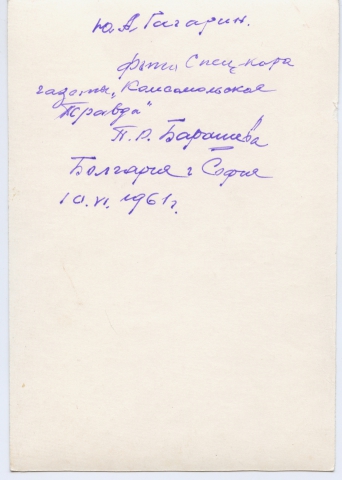 Ю.А Гагарин.
Фото Спец.кора
газеты „Комсомольская
Правда"
П.Р. Барашева
Болгария г София
10.VI.1961г.